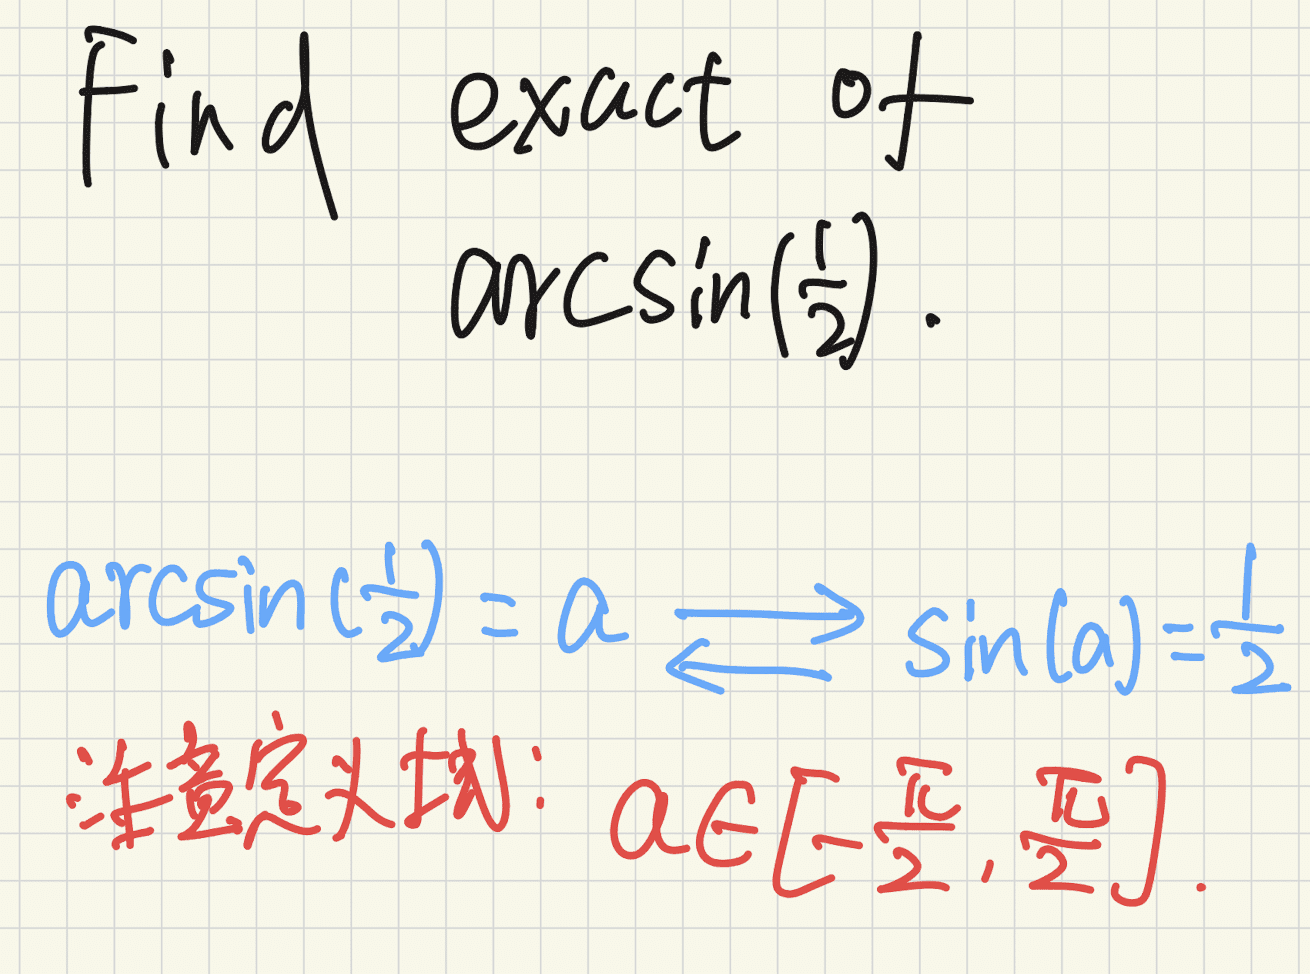 Find exact of
arcsin(1/2).
arcsin(1/2) = a ⟶ ⟵ sin(a) = 1/2
注意定义域: a∈[-π/2, π/2].